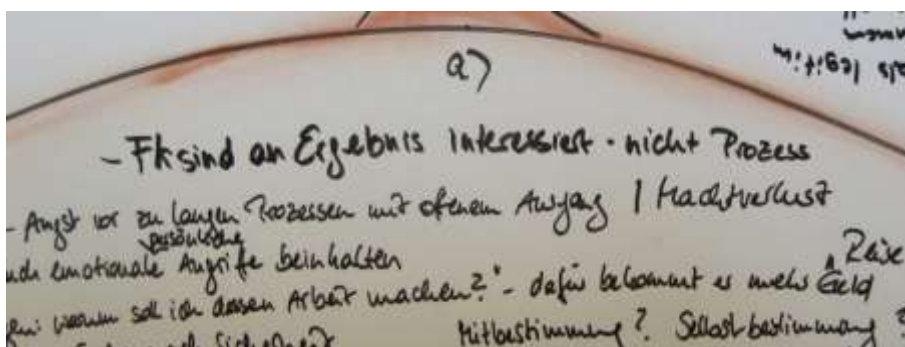 als legitim
a)
- FK sind an Ergebnis interessiert - nicht Prozess
- Angst vor zu langen Prozessen mit offenem Ausgang / Machtverlust
persönliche
emotionale Angriffe beinhalten
Reise
warum soll ich dessen Arbeit machen?" - dafür bekommt er mehr Geld
Mitbestimmung? Selbstbestimmung?